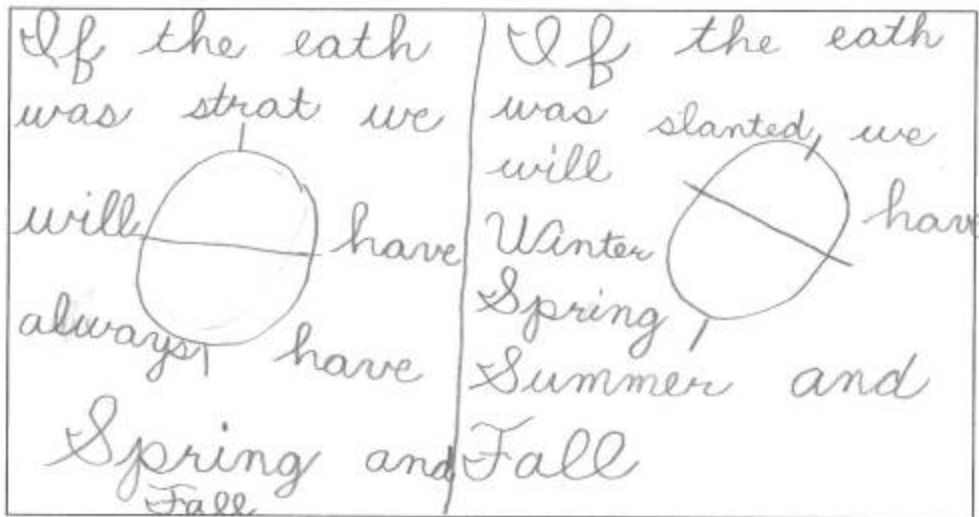 If the eath
was strat we
will have
always have
Spring and
Fall
If the eath
was slanted, we
will have
Winter
Spring
Summer and
Fall